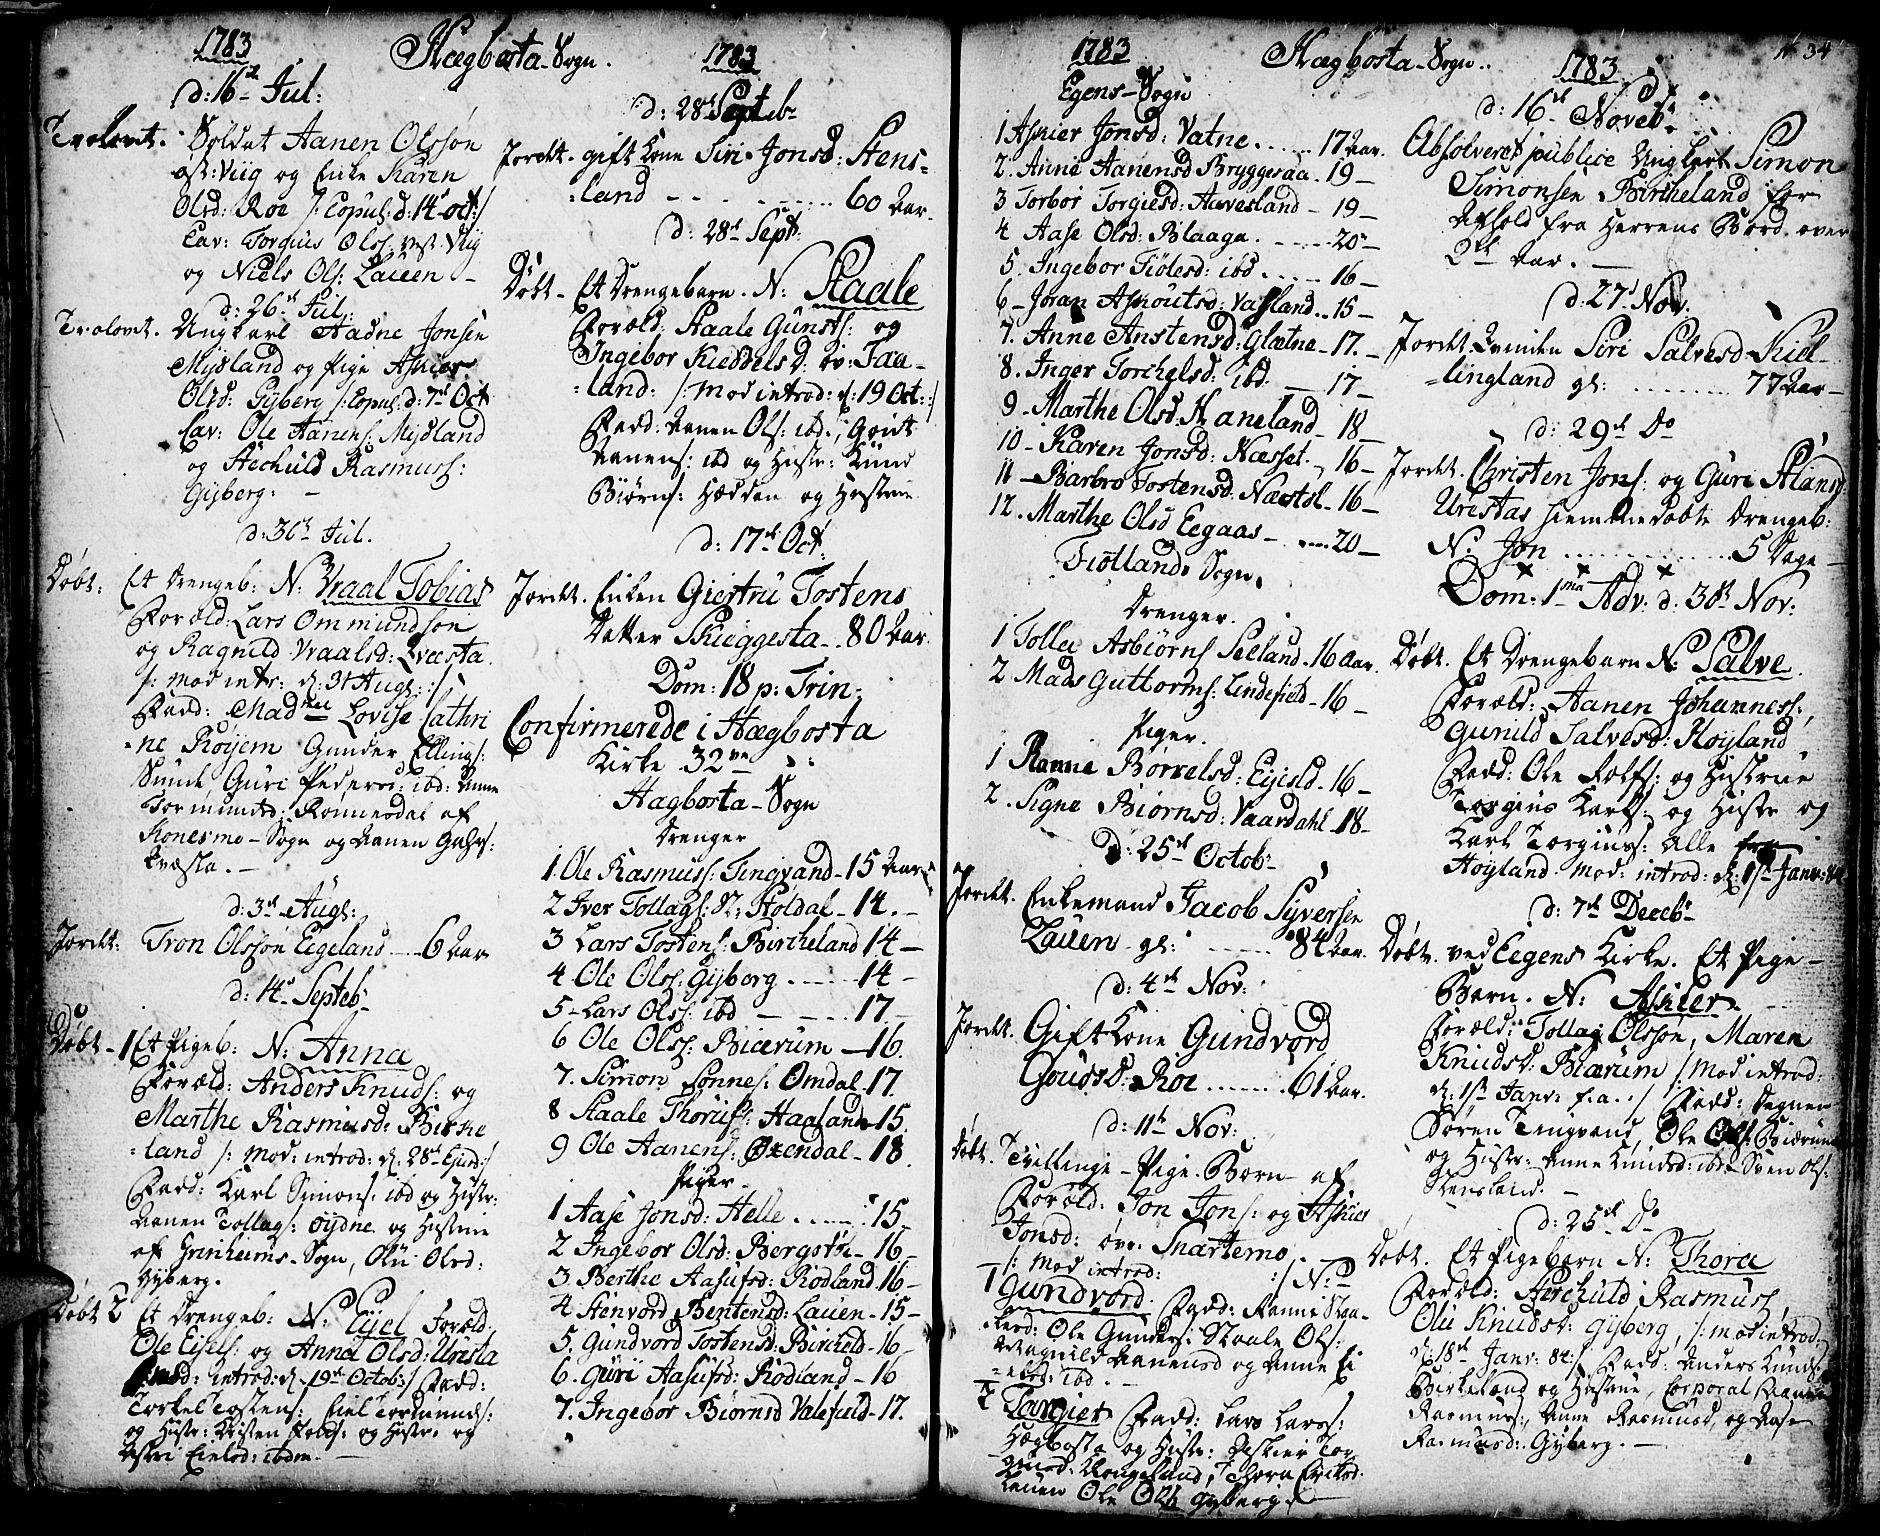 1783
Hægbosta-Sogn.
1783
d: 16de Jul:
Trolovet. Soldat Aanen Olssøn
øst: Viig og Enke Karen
Olsd: Roe /: Copul: d: 14de oct:/
Cav: Torgius Olss: vest: Viig
og Niels Ols: Lauen
d: 26de Jul:
Trolovet. Ungkarl Aadne Jonsen
Mydland og Pige Asgier
Olsd: Gyberg /: Copul: d: 7de Oct
Cav: Ole Aanens: Mydland
og Aschuld Rasmuss:
Gyberg:
d: 30de Jul.
Døbt: Et Drengeb: N: Vraal Tobias
Foræld: Lars Ommundsøn
og Ragnild Vraalsd: Qvæsta.
/: mod intr: d: 31 Augs: :/
Fadd: Madme Lovise Cathri
-ne Røyem Gunder Ellings:
Sunde, Guri Pedersd: ibd: Anne
Tormundsd: Rommesdal af
Konesmo-Sogn og Aanen Gahrs:
Qvæsta.
d: 3de Augs:
Jordet: Tron Olssøn Eigeland ... 6 Aar
d: 14de Septeb:
Døbt - 1 Et Pigeb: N: Anna
Foræld: Anders Knuds: og
Marthe Rasmusd: Birke
=land /: mod: introd: d: 28de Ejusd:/
Fadd: Karl Simons: ibd og Hustr:
Aanen Tollags: Øydne og Hustrue
af Grinheims-Sogn, Oluf Olsd:
Gyberg.
Døbt 2 Et Drengeb: N: Eyel Foræld:
Ole Eiels: og Anna Olsd: Urista
mod: introd: d: 19de Octob:/ Fadd:
Torkel Tostens: Eiel Tormunds:
og Hustr: Kristen Tolds: og Hustr: og
Astri Eielsd: ibdm.
d: 28de Septeb
Jordet. gift Kone Siri Jonsd: Stens=
=land ... 60 Aar.
d: 28de Sept:
Døbt - Et Drengebarn. N: Staale
Foræld: Staale Gunsts: og
Ingebor Kieddelsd: øv: Faa-
=land: /: mod introd: d: 19 Oct: :/
Fadd: Aanen Ols: ibd:, Gout
Aanens: ibd og Hustr: Knud
Biørns: Hædden og Hustrue
d: 17de Oct:
Jordet. Enken Giertru Tostens
Datter Skieggesta - 80 Aar.
Dom: 18 p: Trin:
Confirmerede i Hægbosta
Kirke 32ve
Hægbosta-Sogn
Drenger
1. Ole Rasmuss: Tingvand - 15 Aar
2 Iver Tollags: N: Høldal - 14. -
3 Lars Tostens: Bircheland 14 -
4. Ole Olss: Gyberg ... 14 -
5 - Lars Olss: ibd ... 17 -
6 Ole Olss: Biærum - 16.
7. Simon Sonnes: Omdal - 17.
8 Staale Thorufs: Haaland - 15.
9 Ole Aanens: Øxendal - 18.
Piger -
1 Aase Jonsd: Helle ... 15.
2 Ingebor Olsd: Bergstøl - 16 -
3. Berthe Aasufsd: Rødland 16 -
4 Stenvord Bentensd: Lauen - 15 -
5. Gundvord Tostensd: Bircheld - 16 -
6. Guri Aasufsd: Rødland - 16
7. Ingebor Biørnsd Valefield - 17.
1783
Hægbosta-Sogn..
1783
34
Egens-Sogn
1 Asgier Jonsd: Vatne ... 17 aar.
2. Anne Aanensd Bryggesaa - 19 -
3 Torbor Torgiesd: Aavesland - 19 -
4 Aase Olsd: Blaaga ... 20 -
5. Ingebor Fiølesd: ibd ... 16 -
6 - Joran Asgoutsd: Vassland .. 15 -
7. Anne Anstensd: Glætne - 17. -
8. Inger Torchelsd: ibd: - 17 -
9 - Marthe Olsd: Haneland - 18 -
10 - Karen Jonsd: Næsset - 16 -
11 - Barbro Tostensd: Næstøl - 16 -
12. Marthe Olsd Eegaas - ... 20 -
Fiotlands Sogn.
Drenger.
1 Tollei Asbiørns Seeland - 16 Aar.
2 Mads Guttorms: Lindefield - 16 -
Piger.
1 Ranne Børrelsd: Eyisld - 16 -
2. Signe Biørnsd: Vaardahl - 18 -
d: 25de Octob:
Jordet. Enkemand Jacob Syversen
Lauen gl: ... 84 Aar.
d: 4de Nov:
Jordet. Gift Kone Gundvord
Goudsd: Roe ... 61 Aar.
d: 11te Nov:
Døbt. Tvillinge-Pige-Børn af
Foræld: Jon Jons: og Asgier
Jonsd: øvr: Snartemo.
/: mod introd: :/ N:
1 Gundvord. Fadd: Ranni Staa-
=lesd: Ole Gunders: Staale Ols:
Magnild Aanensd og Anne Ei
=elsd: ibd.
2 Targier Fadd: Lars Larss:
Hægbosta og Hustr: Asgier Tor
gusd: Kongeland, Thora Eriksd
Lauen Ole Ols Gyberg.
d: 16de Noveb:
Absolveret publice Ungkarl Simon
Simonsen Bircheland for
Afhold fra Herrens Bord over
2de Aar.
d: 27de Nov.
Jordet. Qvinden Siri Salvesd Kiel-
=lingland gl: ... 77 Aar -
d: 29de Do
Jordet. Christen Jons: og Guri Alansd
Uristas hiemmedøbte Drengeb:
N: Jon ... 5 Dage -
Dom: 1ma Adv: d: 30te Nov:
Døbt. Et Drengebarn N: Salve.
Foræld: Aanen Johanness:,
Gunild Salvesd: Høyland.
Fadd: Ole Rolfs: og Hustrue
Torgius Karls: og Hustr og
Karl Torgius: alle
Høyland mod: introd: d: 1ste Janv: 84
d: 7de Deceb:
Døbt. ved Eegens Kirke. Et Pige-
Barn. N: Asgier.
Foræld: Tollag Olssøn, Maren
Knudsd: Biærum /: mod introd:
d: 1ste Janv: f.a. :/ Fadd: Degnen
Søren Tingvand, Ole Ols: Biærum
og Hustr: Anne Knudsd: ibd: Sven Ols:
Stensland.
d: 25de Do
Døbt. Et Pigebarn N: Thora
Foræld: Aschuld Rasmuss,
Olu Knudsd: Gyberg, /: mod introd:
d: 18de Janv: 84:/ Fadd: Anders Knuds:
Birkeland og Hustrue, Corporal Aanen
Rasmus:, Anne Rasmusd, og Aase
Rasmusd: Gyberg.